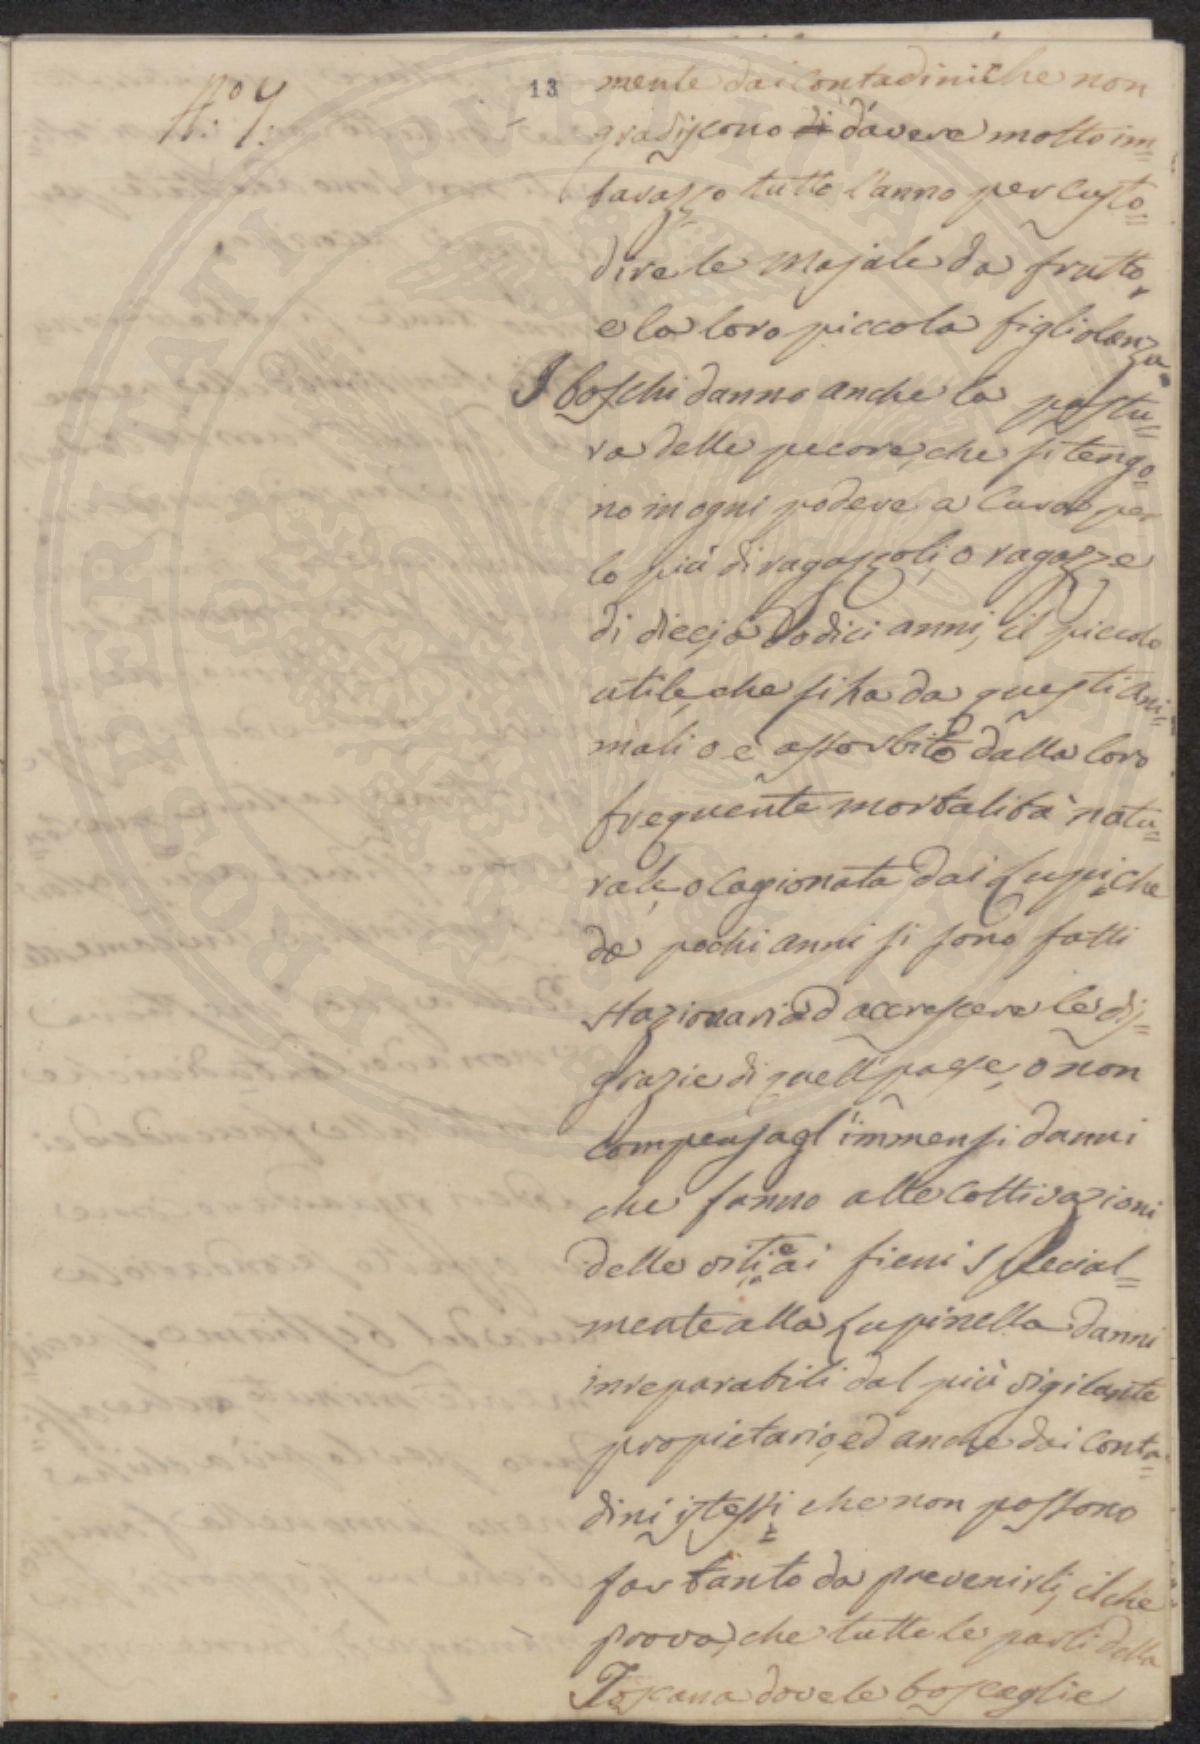 N.º 4.
13
mente dai Contadini che non
gradiscono di d'avere molto im=
barazzo tutto l'anno per custo=
dire le Majale da frutto,
e la loro piccola figliolanza.
I boschi danno anche la pastu=
ra delle pecore, che si tengo=
no in ogni podere a Cura per
lo più di ragazzoli, o ragazze
di dieci, a Dodici anni, il piccolo
utile, che si ha da questi Ani=
mali o è assorbito dalla loro
frequente mortalità natu=
rale, o Cagionata dai Lupi, che
da pochi anni si sono fatti
stazionari ad accrescere le dis=
grazie di quell paese, o non
Compensa gl'immensi danni
che fanno alle Coltivazioni
delle viti, e ai fieni special=
mente alla Lupinella danni
inreparabili dal più vigilante
propietario, ed anche dai Conta=
dini istessi che non possono
far tanto da prevenirli, il che
prova, che tutte le parti della
Toscana dove le boscaglie
PERITATI PVBLICAE